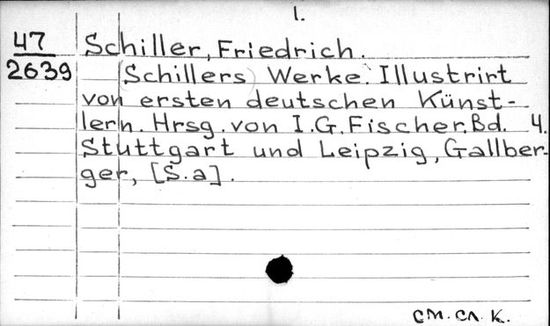 1.
47 Schiller, Friedrich.
2639 (Schillers) Werke. Illustrirt
von ersten deutschen Künst-
lern. Hrsg. von I.G. Fischer. Bd. 4.
Stuttgart und Leipzig, Gallber-
ger, [S.a].
см. сл. к.